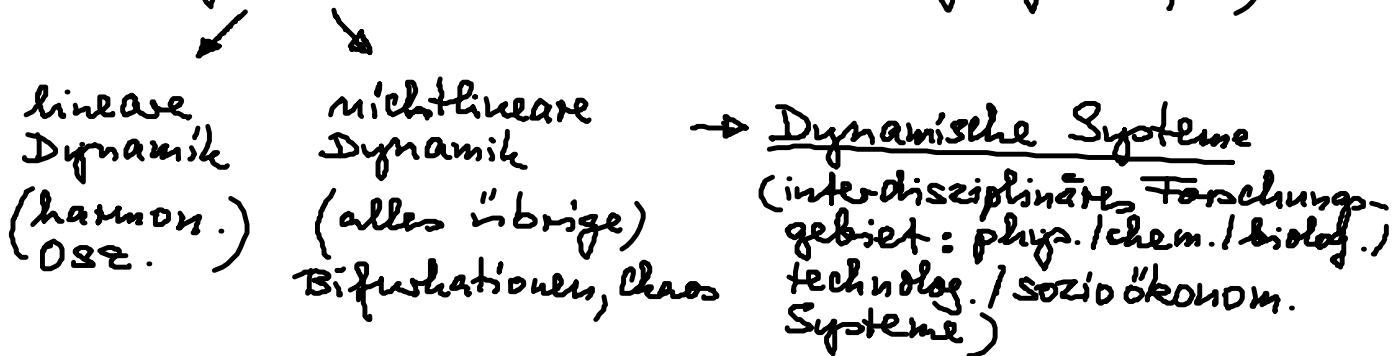 lineare
Dynamik
(harmon.
Osz.)
nichtlineare
Dynamik
(alles übrige)
Bifurkationen, Chaos
→ Dynamische Systeme
(interdisziplinäres Forschungs-
gebiet: phys./chem./biolog./
technolog./sozioökonom.
Systeme)